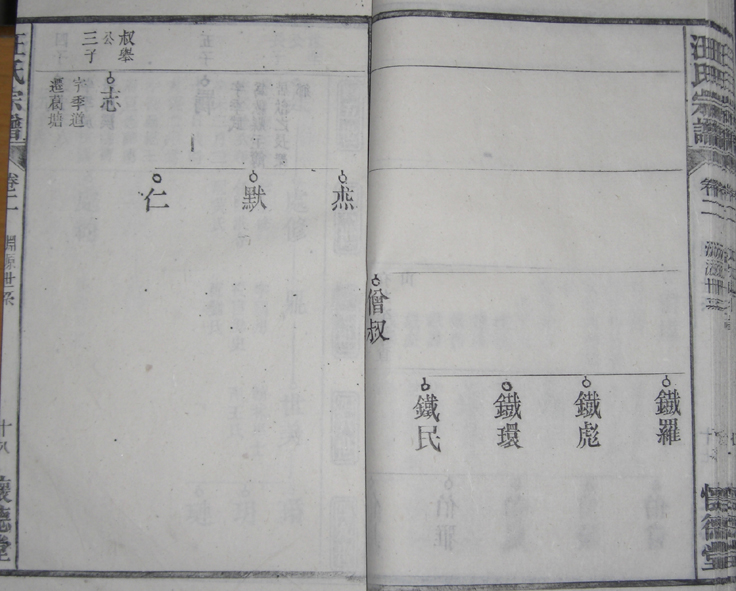 汪氏宗譜
卷二
懷德堂
鐵羅
鐵彪
鐵環
鐵民
僧叔
燕
默
仁
叔舉
公
三子
志
字季道
遷葛塘
汪氏宗譜
卷二
淵源世系
十八
懷德堂